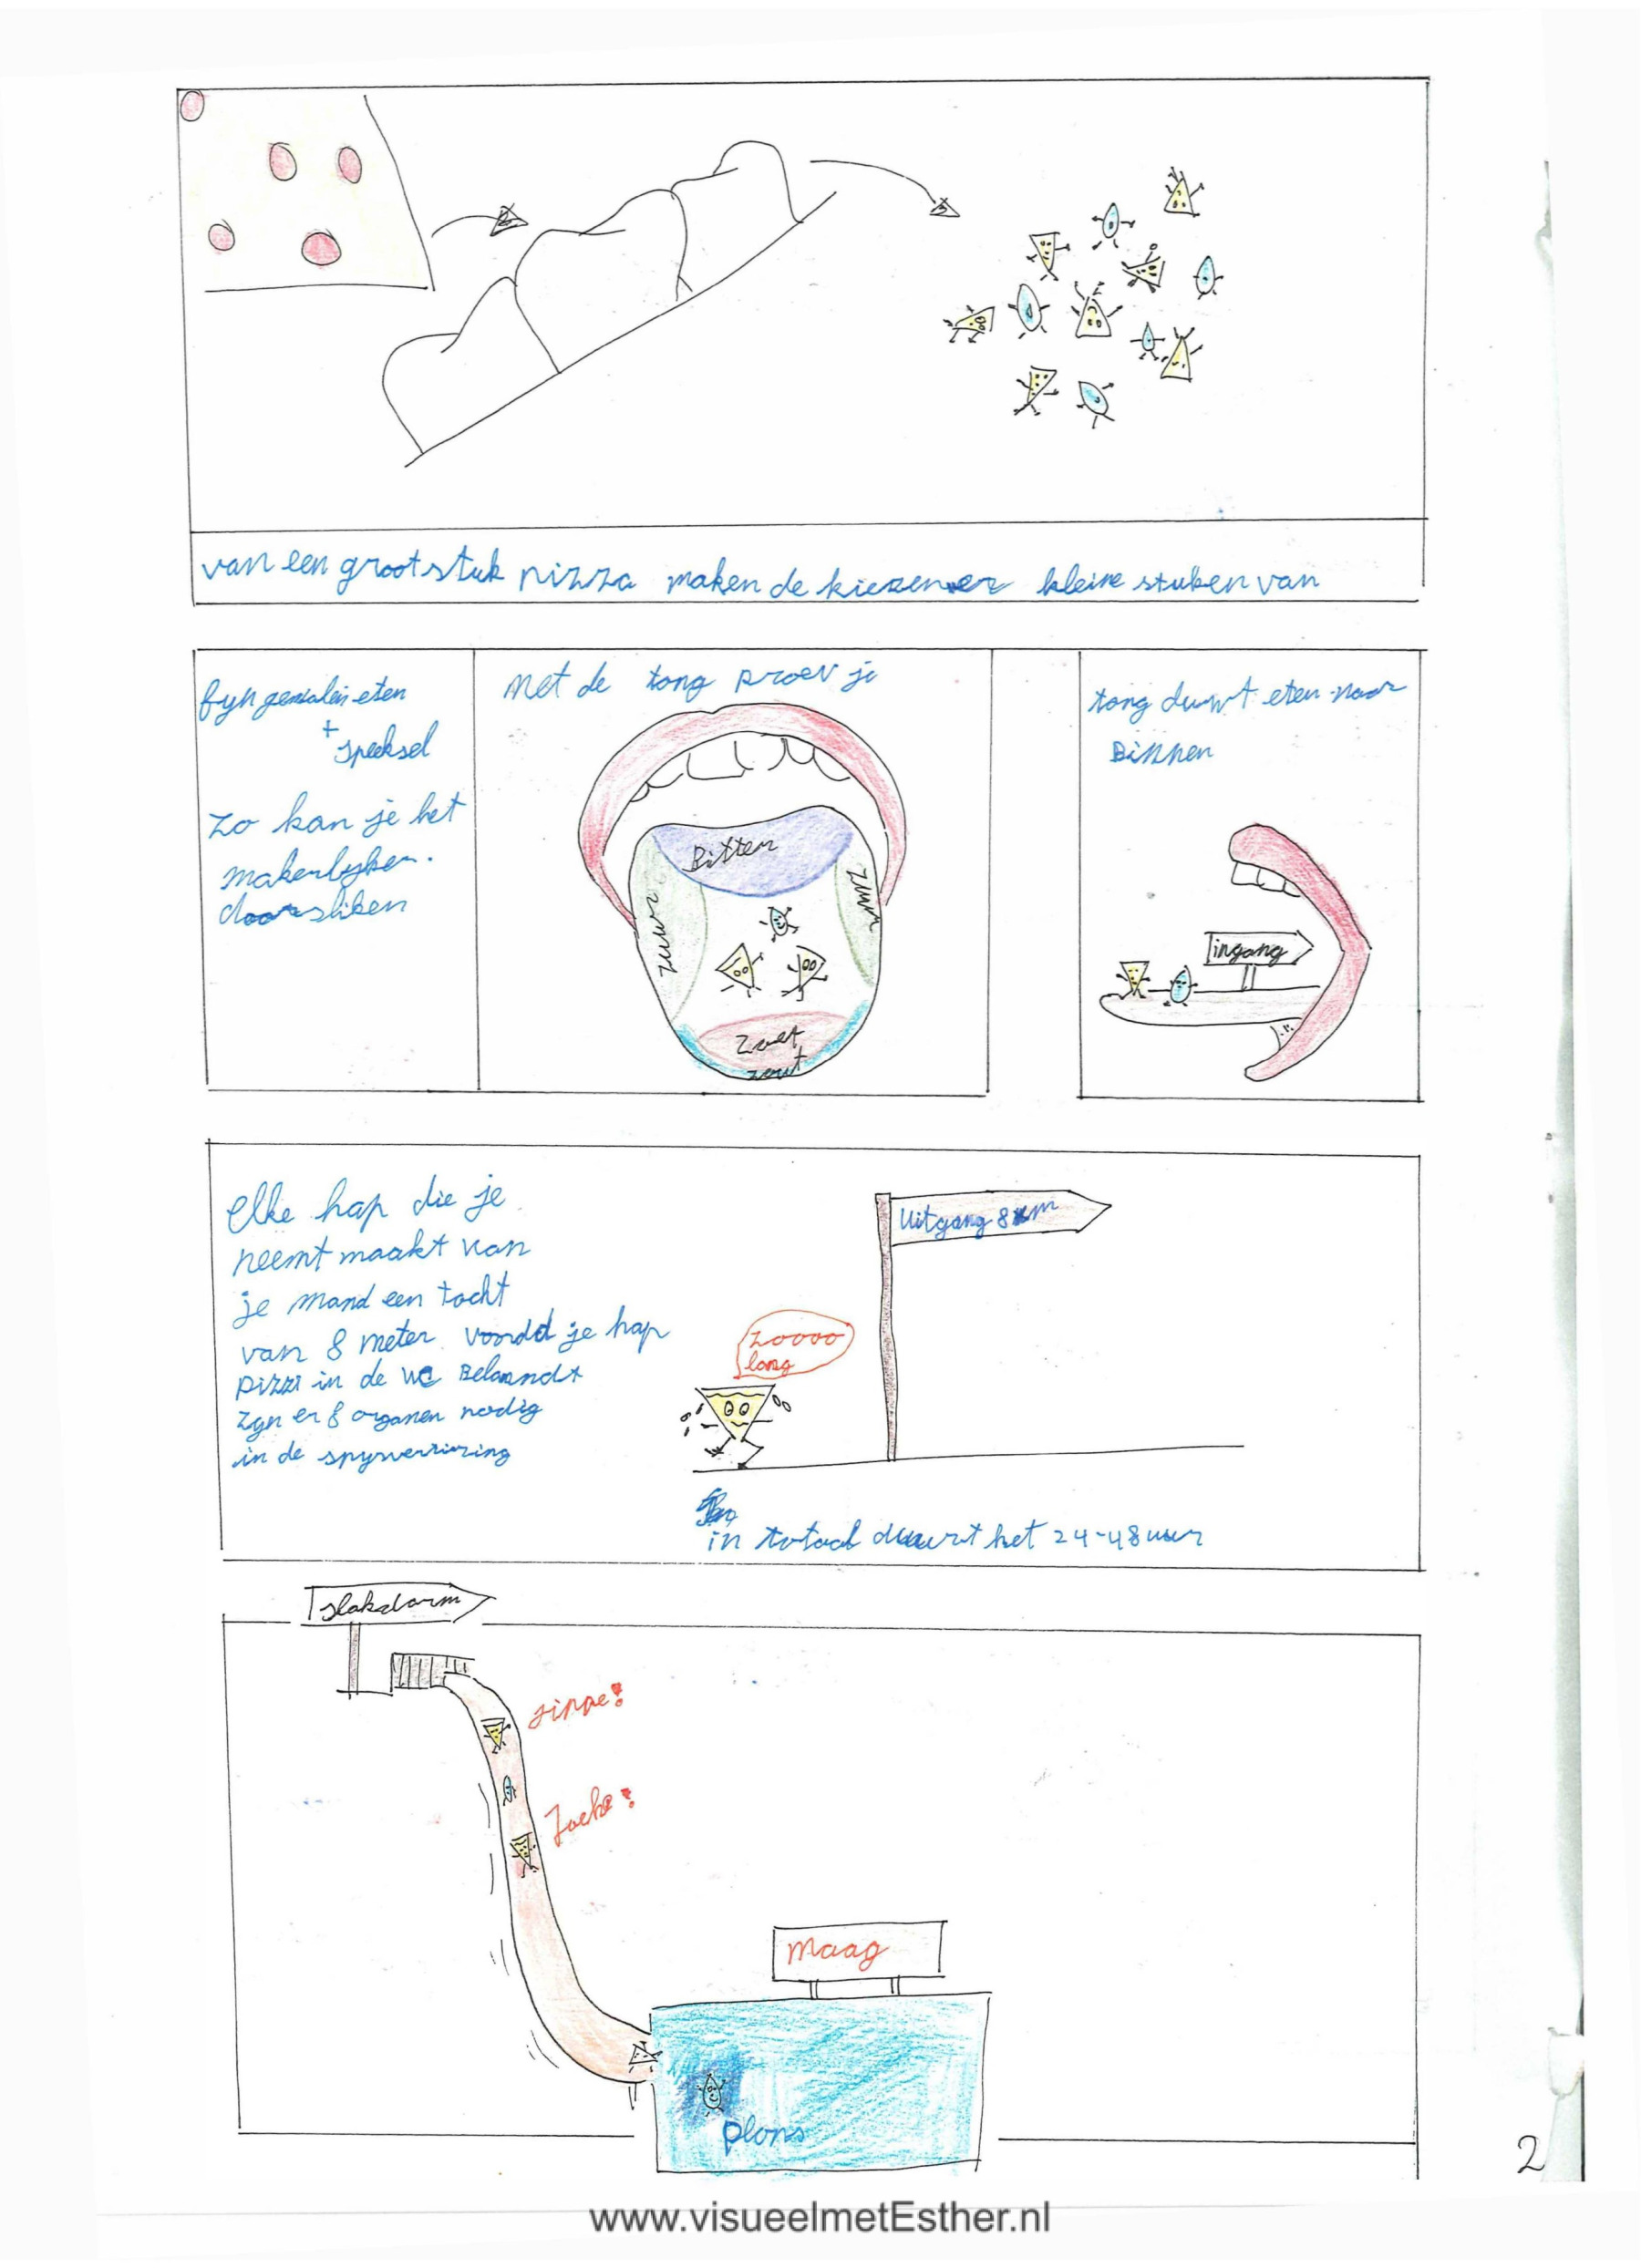 van een groot stuk pizza maken de kiezen er kleine stuken van
fyn gemalen eten
+
speeksel
zo kan je het
makenlyker.
doorsliken
met de tong proev je
Bitter
zuur
zuur
Zoet
zout
tong duwt eten naar
Binnen
ingang
elke hap die je
neemt maakt van
je mand een tocht
van 8 meter. voordd je hap
pizza in de wc Belandt
zyn er 8 organen nodig
in de
Uitgang 8 m
zoooo
lang
in totaal duurt het 24-48 uur
slokdarm
jippe!
Joehe!
maag
plons
2
www.visueelmetEsther.nl